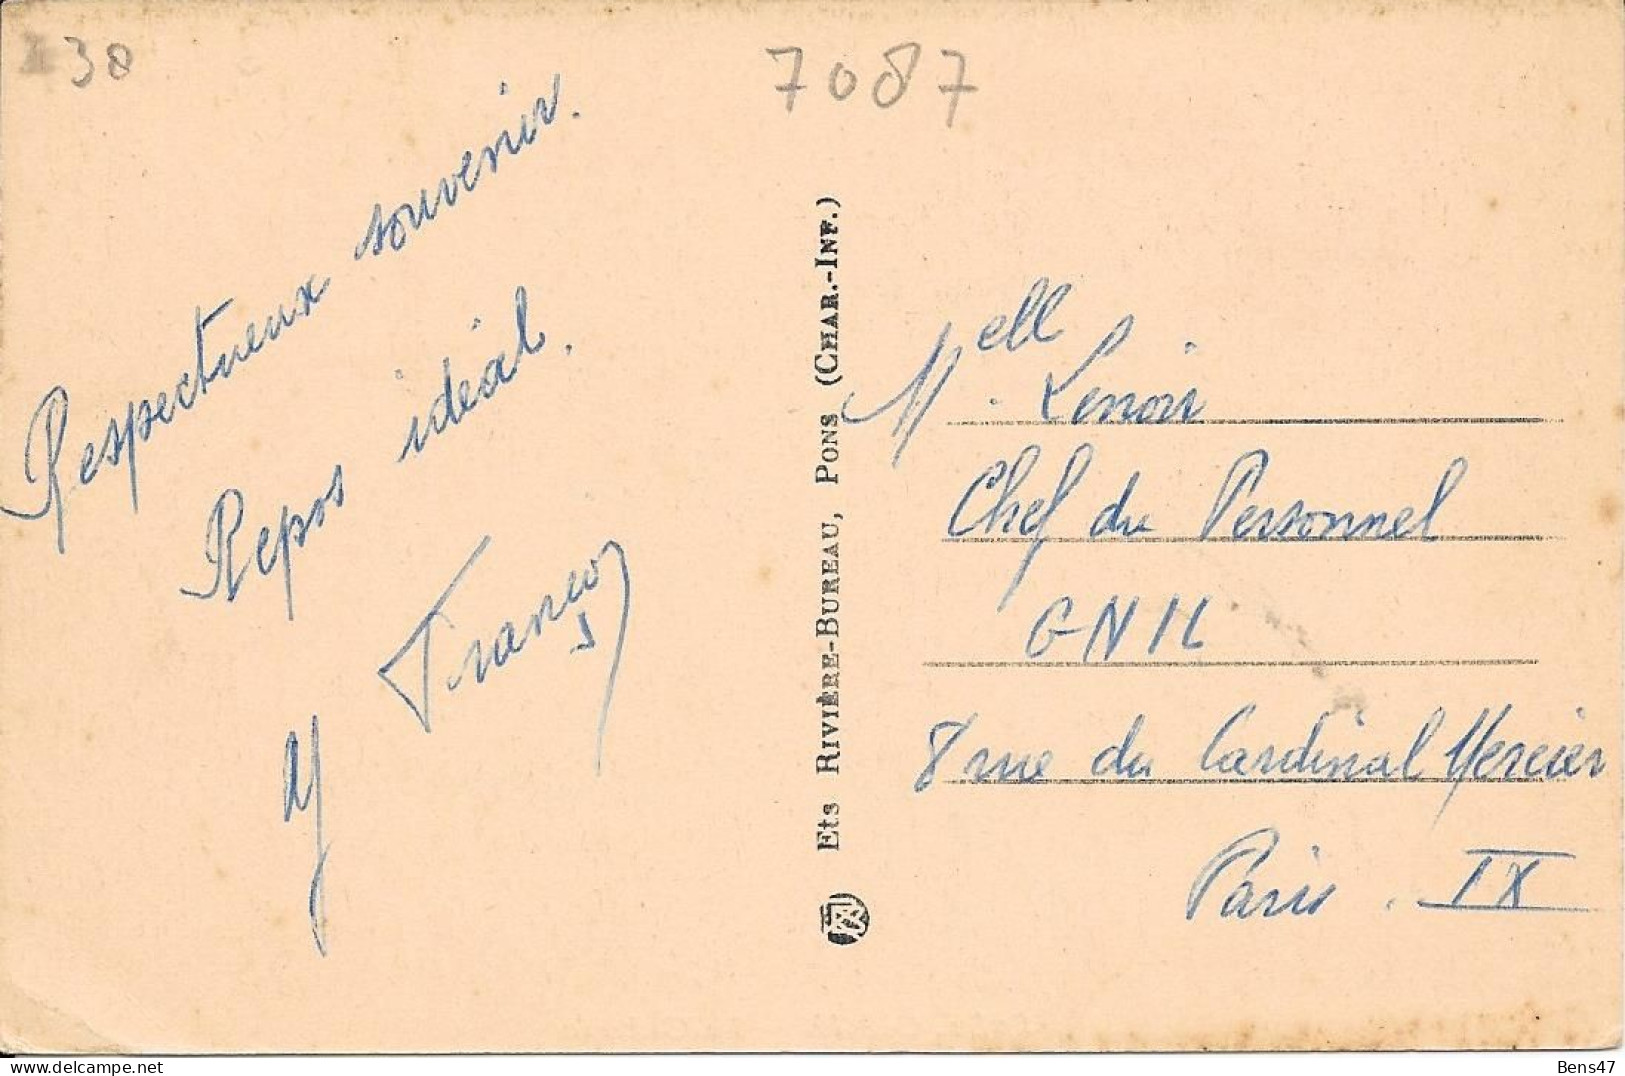 30
7087
Respectueux souvenir.
Repos idéal.
Y
Ets Rivière-Bureau, Pons (Char.-Inf.)
Mell. Lenoir
Chef du Personnel
GNIL
8 rue du Cardinal Mercier
Paris. IX
Bens47